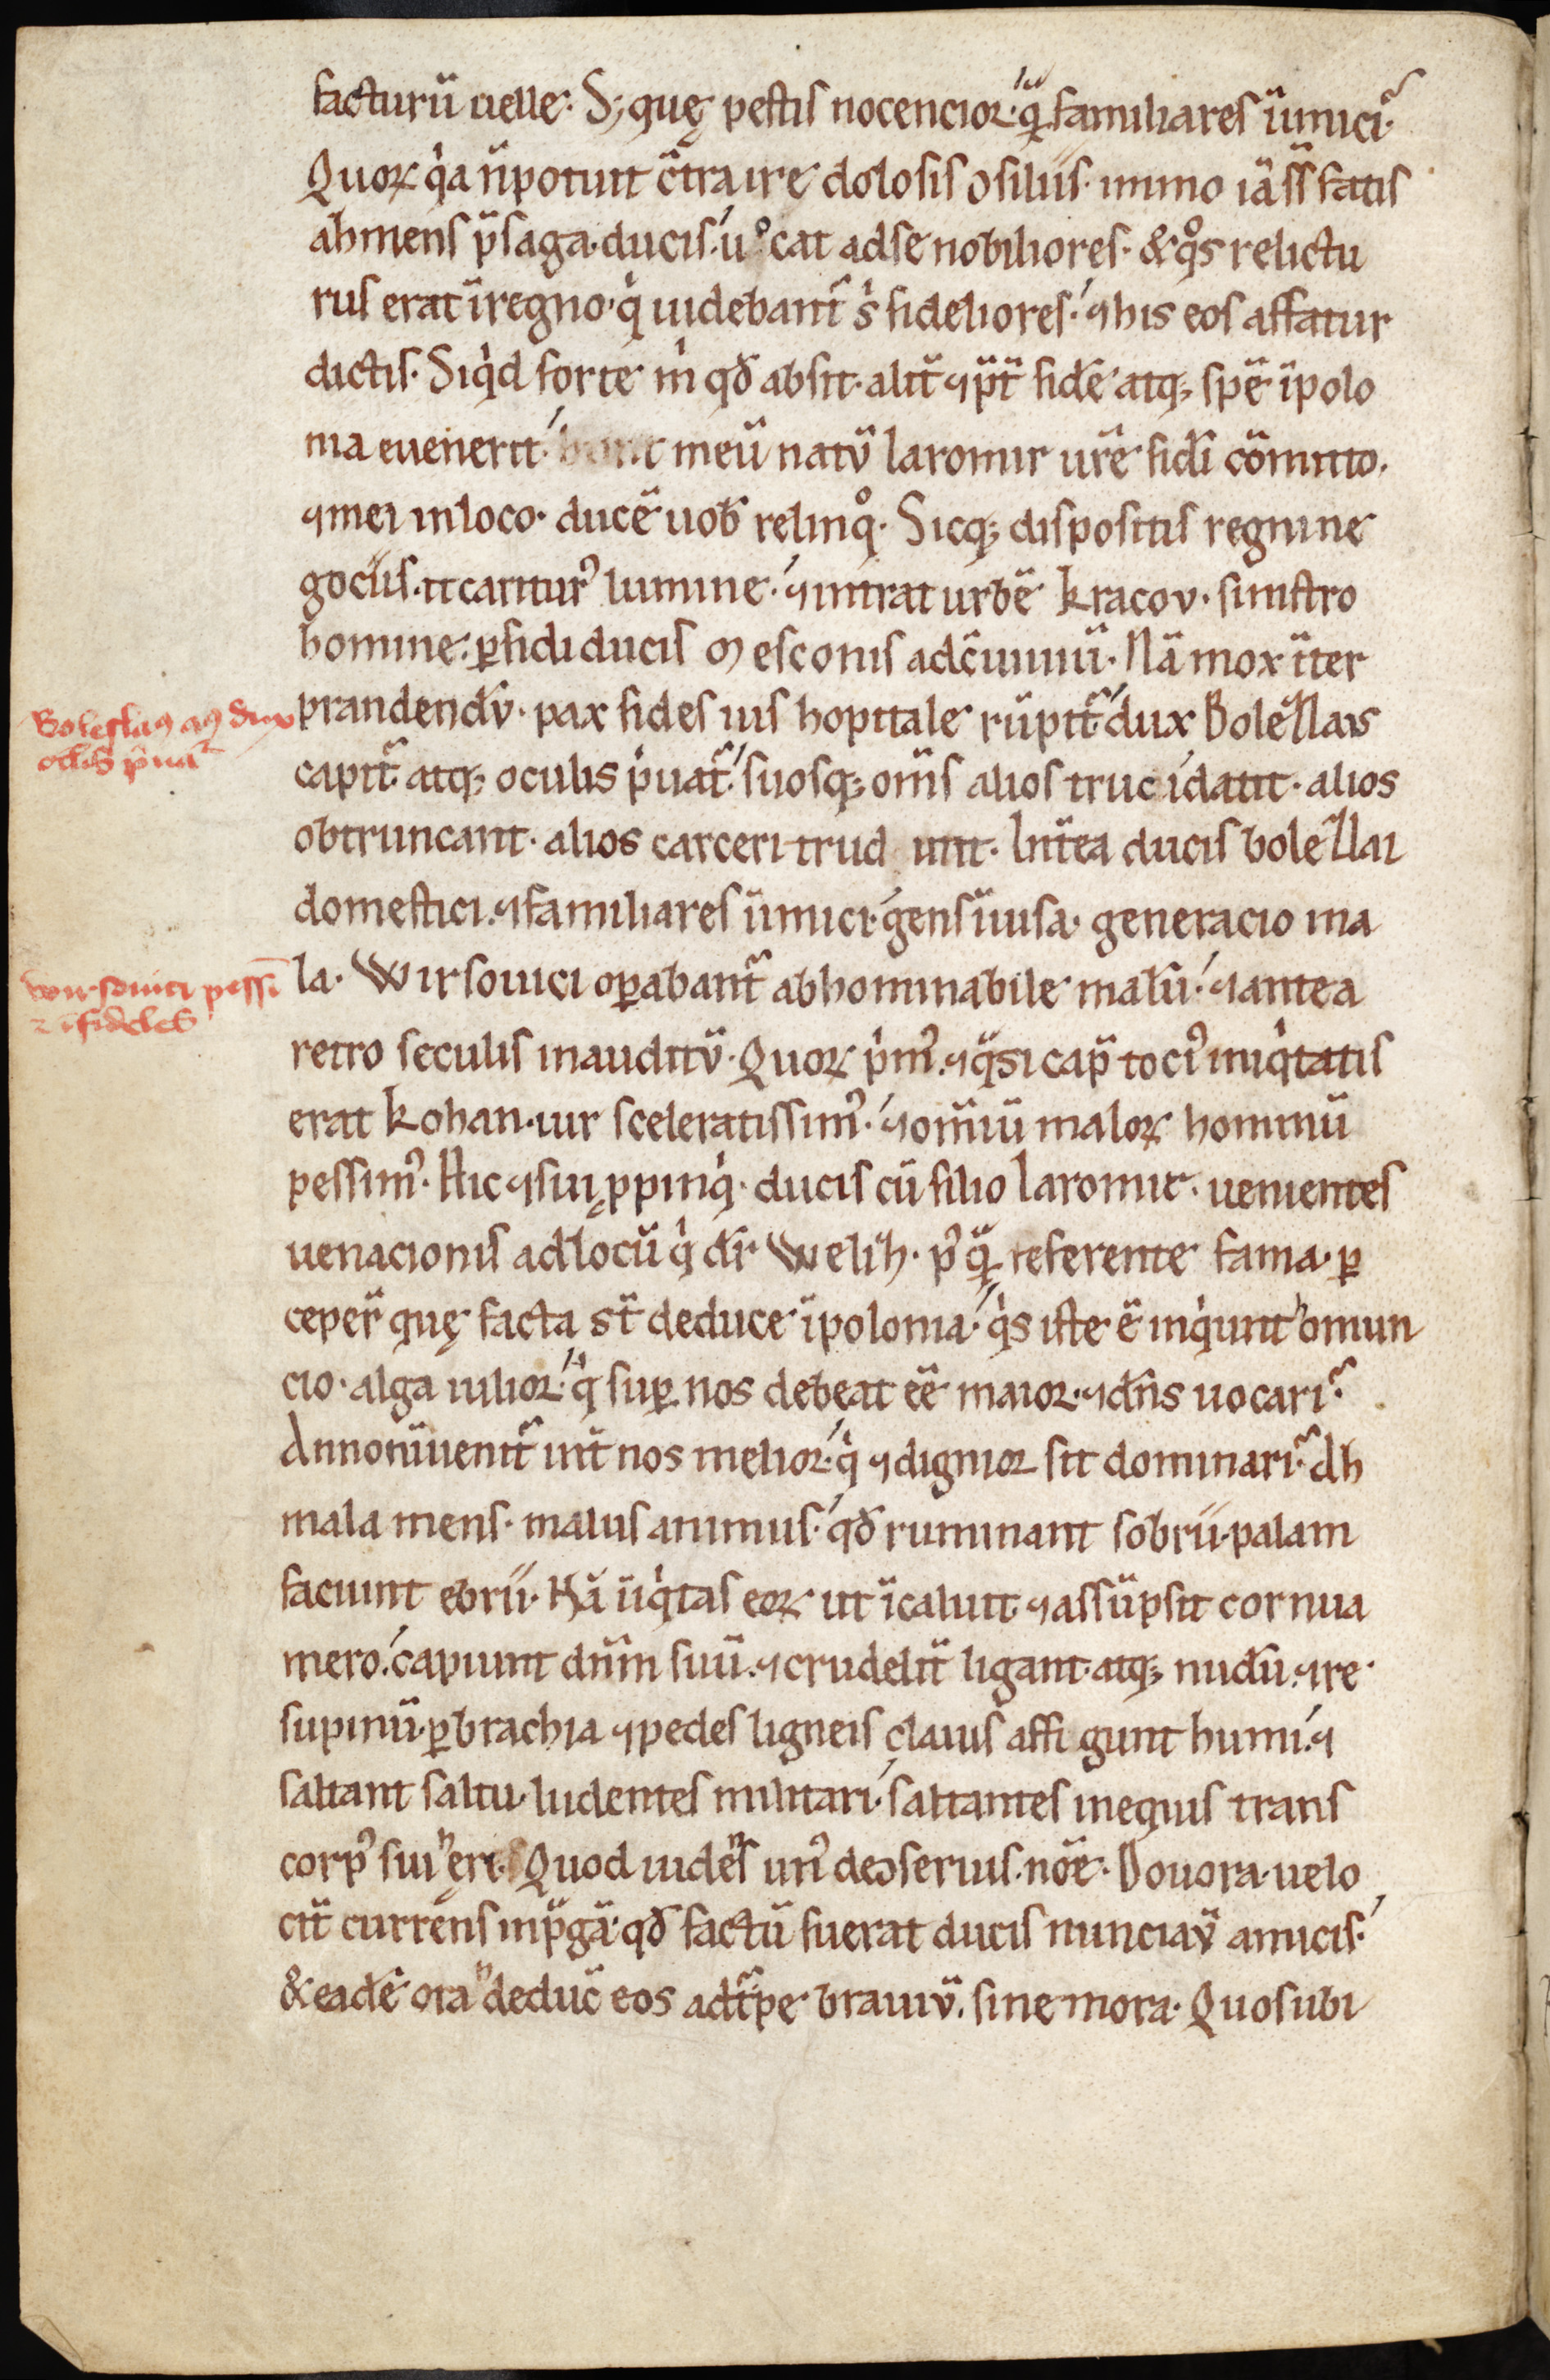 facturū uelle. S; quę pestis nocencior. q̄ familiares inimici.
Quorꝝ qia ñ potuit ctraire dolosis ɔsiliis. immo iā ss fatis
ah mens p̄saga ducis. uocat ad se nobiliores. & qos relictu
rus erat ī regno. qi uidebant᷑ si fideliores. ⁊ his eos affatur
dictis. Si qid forte mi qđ absit. alit̄ ⁊ p̄t̄ fidē atq; spē ī polo
nia euenerit. hunc meū natū Iaromir ur̄e fidi cōmitto.
⁊ mei in loco. ducē uob relinqo. Sicq; dispositis regni ne
gociis. it cariturꝰ lumine. ⁊ intrat urbē kracov. sinistro
homine. ꝑfidi ducis Mesconis ad cuiuiū. Nā mox īter
prandendū. pax fides ius hopitale rūpit᷑. dux Bolezlaus
capit᷑. atq; oculis piuat᷑. suosq; om̄s alios trucidant. alios
obtruncant. alios carceri trudunt. Int̄ea ducis bolezlai
domestici. ⁊ familiares inimici. gens īuisa. generacio ma
la. Wirsouici oꝑabant᷑ abhominabile malū. ⁊ antea
retro seculis inauditū. Quorꝝ pimꝰ. ⁊ q̄si cap̄ tociꝰ iniqitatis
erat kohan. uir sceleratissimꝰ. ⁊ om̄iū malorꝝ hominū
pessimꝰ. Hic ⁊ sui ꝓpinqi. ducis cū filio Iaromir. uenientes
uenacionis ad locū qi dr̄ Weliz. pꝰq̄ referente fama. ꝑ
ceper̄ quę facta st̄ de duce ī polonia. qis iste ē inqiunt homun
cio. alga uilior. qi suꝑ nos debeat eē maior. ⁊ dn̄s uocari.
An non īuenit᷑ int̄ nos melior. qi ⁊ dignior sit dominari. Ah
mala mens. malus animus. qđ ruminant sobrii. palam
faciunt ebrii. Nā iniqitas eorꝝ ut īcaluit. ⁊ assūpsit cornua
mero. capiunt dn̄m suū. ⁊ crudelit̄ ligant. atq; nudū. ⁊ re
supinū. ꝑ brachia ⁊ pedes ligneis clauis affigunt humi. ⁊
saltant saltu. ludentes militari. saltantes in equis trans
corpꝰ sui heri. Quod uidens unꝰ de ɔseruis. noīe. Douora. uelo
cit̄ currens in p̄gā. qđ factū fuerat ducis nunciav̄ amicis.
& eadē hora deduc̄ eos ad t᷑pe brauiū. sine mora. Quos ubi
Boleslaus aꝰ dux
oclis p̄uat᷑
wir souici pessi
⁊ īfideles